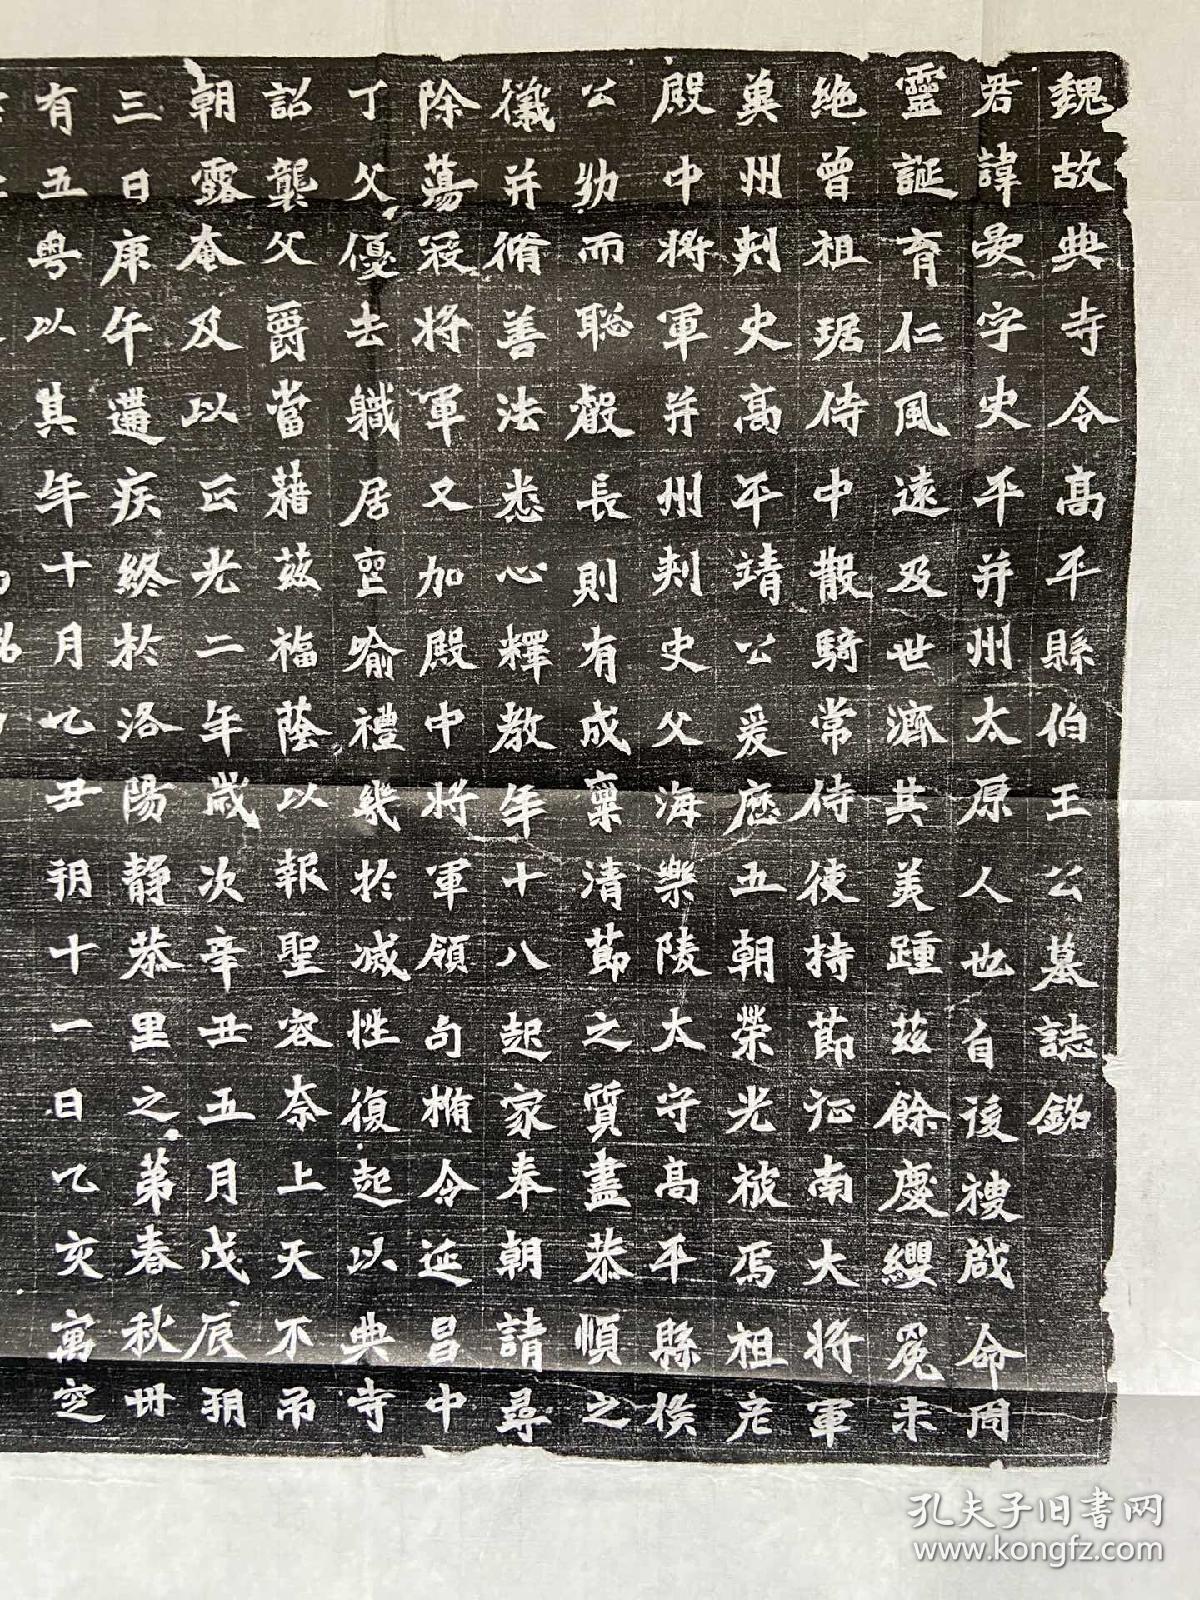 魏故典寺令高平縣伯王公墓誌銘
君諱晏字史平并州太原人也自後稷啟命周
靈誕育仁風遠及世濟其美踵茲餘慶纓冕未
絕曾祖琚侍中散騎常侍使持節征南大將軍
冀州刾史高平靖公爰歷五朝榮光被焉祖庄
殿中將軍并州刾史父海樂陵太守高平縣侯
公幼而聡叡長則有成稟清節之質盡恭順之
儀并脩善法悉心釋教年十八起家奉朝請尋
除蕩寇將軍又加殿中將軍領句楯令延昌中
丁父優去軄居堊喻禮幾於滅性復起以典寺
詔襲父爵當藉茲福蔭以報聖容奈上天不吊
朝露奄及以正光二年歲次辛丑五月戊辰朔
三日庚午遘疾終於洛陽靜恭里之第春秋卌
有五粤以其年十月乙丑朔十一日乙亥窀穸
孔夫子旧书网
www.kongfz.com